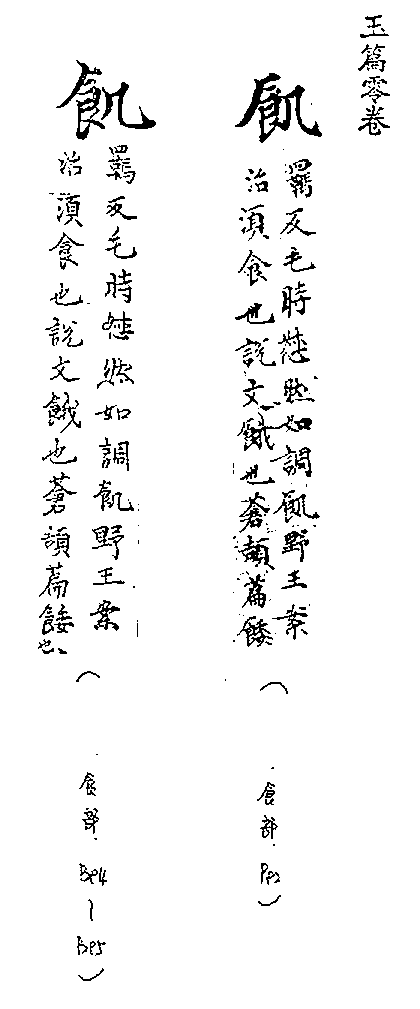 玉篇零卷
飢
羇反毛時惄然如調飢野王案
治湏食也說文餓也蒼頡篇餧
(食部 P92)
飢
羇反毛時惄然如調飢野王案
治湏食也說文餓也蒼頡篇餧也
(食部 B94~B95)